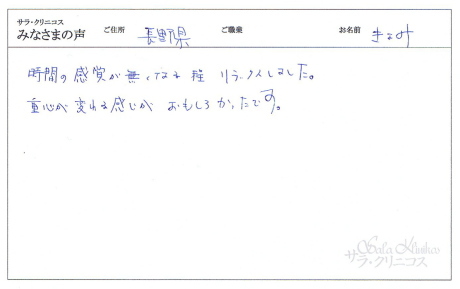 サラ・クリニコス
みなさまの声 ご住所 長野県 ご職業 お名前 きよみ
時間の感覚が無くなる程 リラックスしました。
重心が変わる感じが おもしろかったです。
Sala Klinikos
サラ・クリニコス